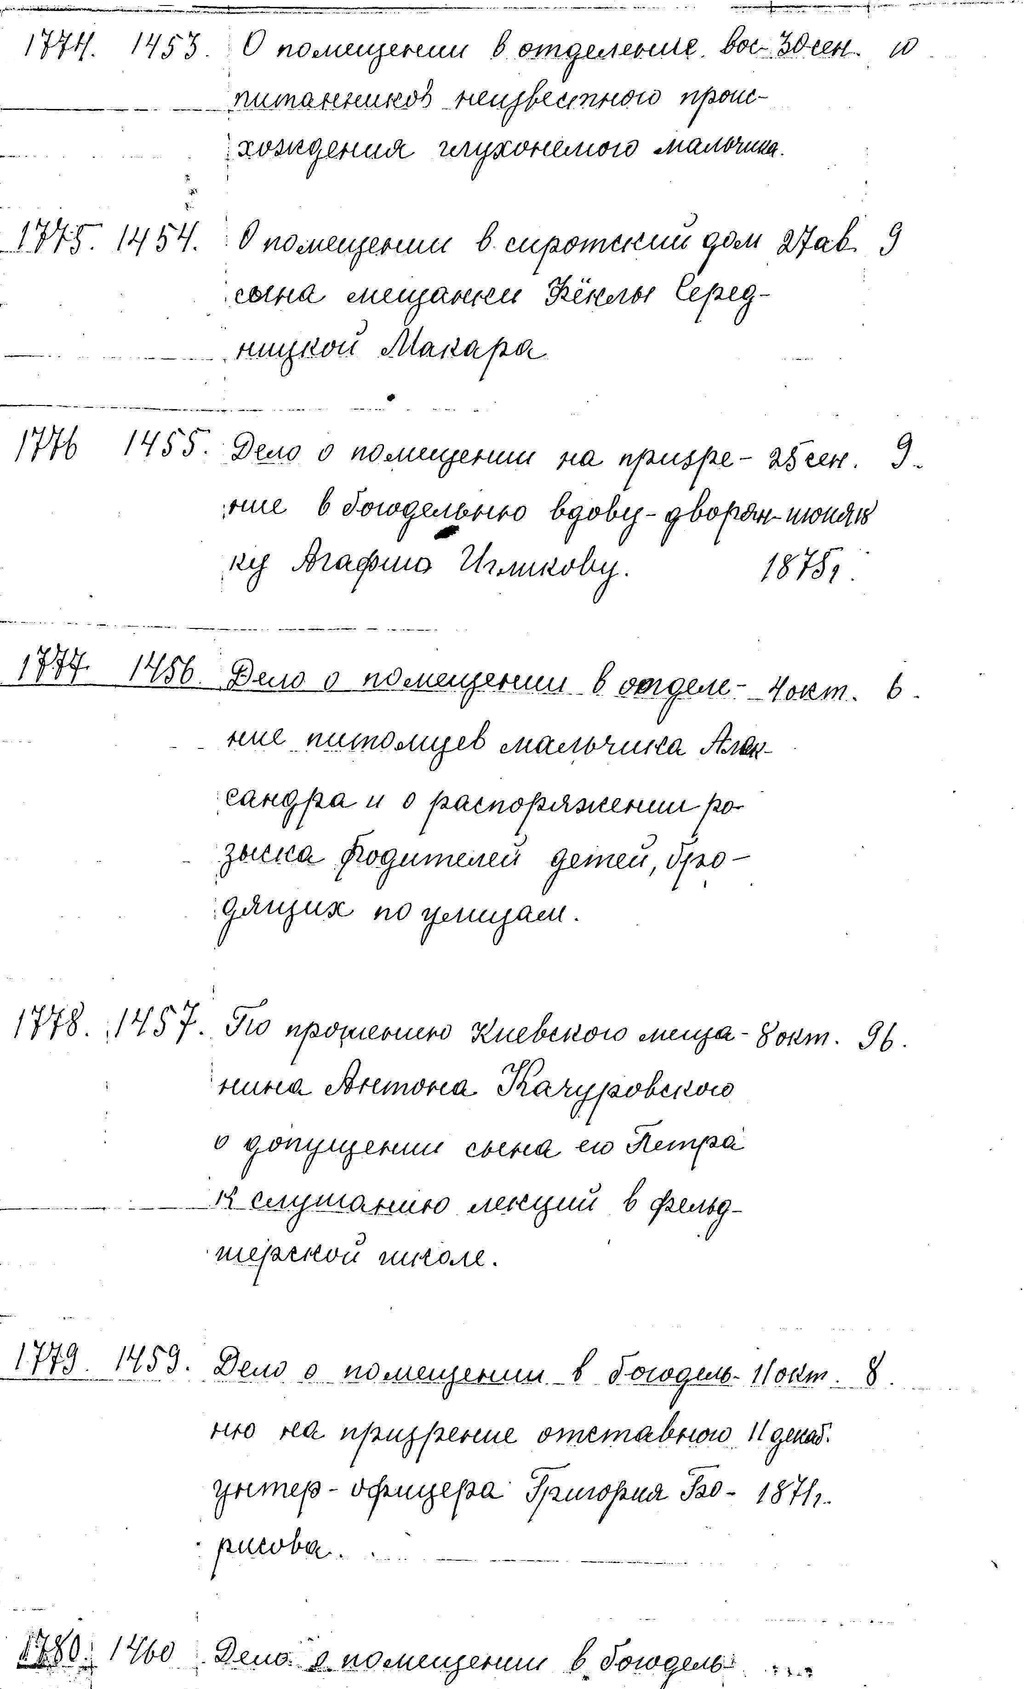 1774. 1453. О помещении в отделение вос- 30 сен. 10
питанников неизвестного проис-
хождения глухонемого мальчика.
1775. 1454. О помещении в сиротский дом 27 ав. 9
сына мещанки Фёклы Серед-
ницкой Макара
1776 1455. Дело о помещении на призре- 25 сен. 9.
ние в богодельню вдову-дворян-
ку Агафию Игликову. 1875г.
1777. 1456. Дело о помещении в отделе- 4 окт. 6.
ние питомцев мальчика Алек-
сандра и о распоряжении ро-
зыска родителей детей, бро-
дящих по улицам.
1778. 1457. По прошению Киевского меща- 8 окт. 96.
нина Антона Качуровского
о допущении сына его Петра
к слушанию лекций в фельд-
шерской школе.
1779. 1459. Дело о помещении в богодель- 11 окт. 8.
ню на призрение отставного 11 декаб.
унтер-офицера Григория Бо- 1871г.
рисова.
1780. 1460 Дело о помещении в богодель-